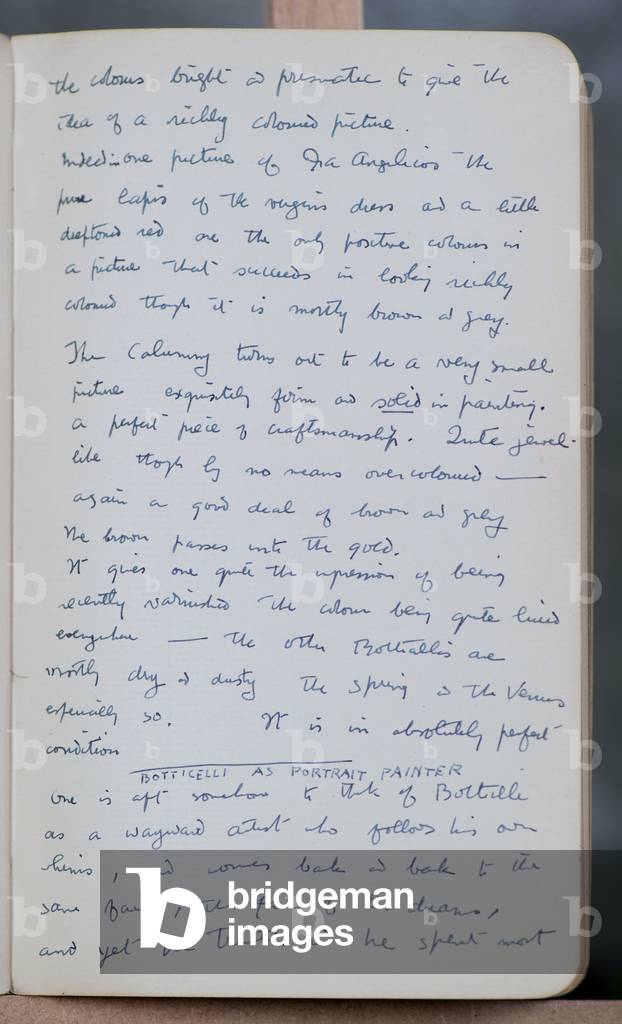 the colours bright and prismatic to give the
idea of a richly coloured picture.
Indeed in one picture of Fra Angelicos the
pure lapis of the virgins dress and a little
red are the only positive colours in
a picture that succeeds in looking richly
coloured though it is mostly brown and grey.
The Calumny turns out to be a very small
picture exquisitely firm and solid in painting.
a perfect piece of craftsmanship. Quite jewel-
like though by no means overcoloured —
again a good deal of brown and grey
the brown passes into the gold.
It gives one quite the impression of being
recently varnished the colour being quite
everywhere — the other Botticellis are
mostly dry and dusty the Spring and the Venus
especially so. It is in absolutely perfect
condition
BOTTICELLI AS PORTRAIT PAINTER
One is apt somehow to think of Botticelli
as a wayward artist who follows his own
whims, and comes back and back to the
same dreams,
and yet he spent most
bridgeman
images